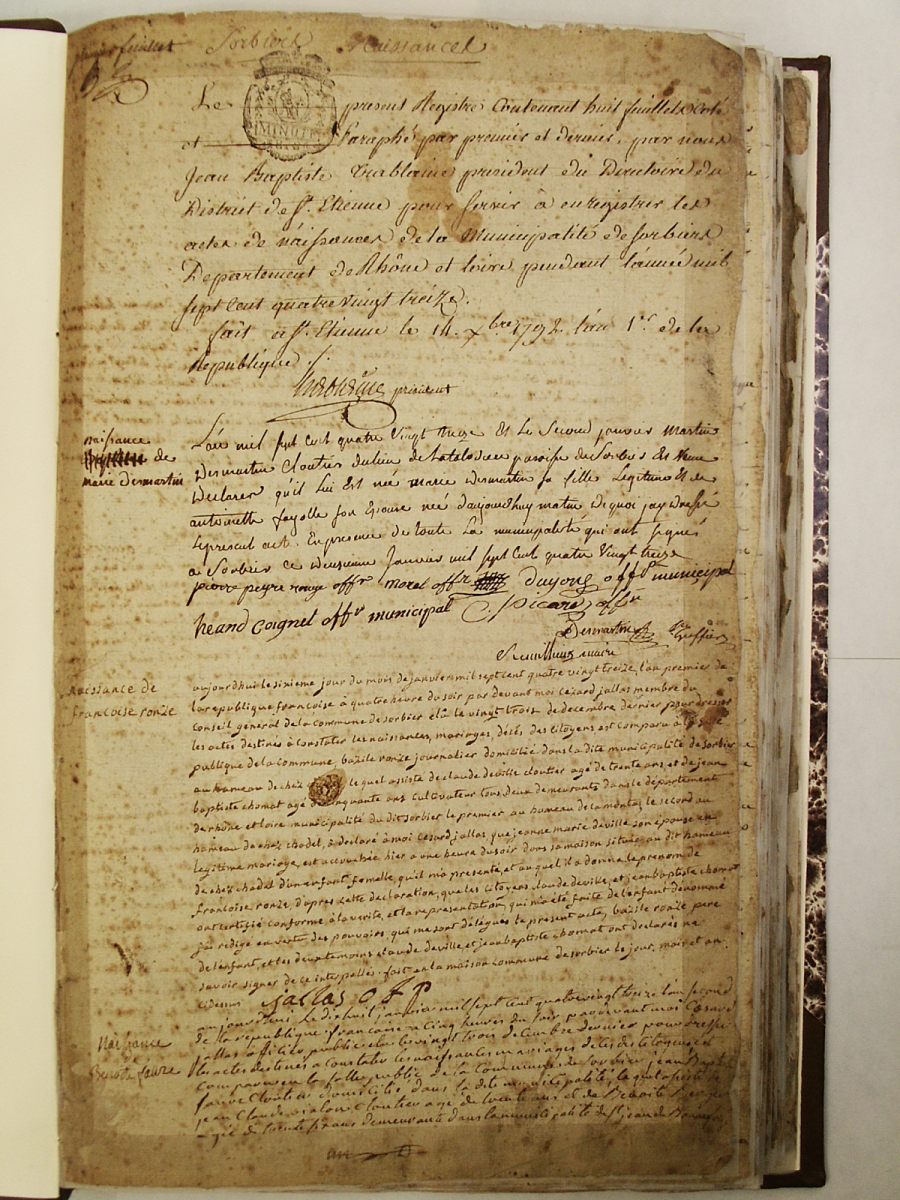 premier feuillet Sorbiers Naissances
Le present Registre Contenant huit feuillets Coté
MINUTE
et Paraphé par premier et dernier, par nous
Jean Baptiste president du Directoire du
District de St. Etienne pour servir à enregistrer les
actes de naissances de la Municipalité de Sorbiers
Departement de Rhône et Loire pendant l'année mil
sept cent quatre vingt treize.
fait à St. Etienne le 14. Xbre 1792. l'an 1er de la
Republique
président
naissance
de
marie Desmartin
L'an mil sept cent quatre Vingt treize Et Le Second janvier Martin
Desmartin Cloutier du lieu de paroisse de Sorbier Est venu
Declarer qu'il Lui Est né marie Desmartin sa fille Legitime Et de
antoinette fayolle son Epouse née d'aujourdhuy matin De quoi jay Dressé
Le present act. En presence de toute La municipalité qui ont signés
a Sorbier ce deuxieme Janvier mil sept Cent quatre Vingt treize
pierre peyre rouge offr morel offr offr municipal
heand Coignet offr municipal Picard offr
Desmartin Greffier
maire
Naissance de
francoise ronze
aujourdhui le sixieme jour du mois de janvier mil sept cent quatre vingt treize, l'an premier de
la republique francoise à quatre heure du soir par devant moi Cezard jallas membre du
Conseil general de la commune de sorbier élû le vingt trois de decembre dernier pour dresser
les actes destinés à Constater les naissances, mariages, décès des citoyens est comparu à la salle
publique de la commune, bazile ronze journalier domicilié dans la dite municipalité de sorbier
au hameau de chez le quel assisté de claude deville cloutier agé de trente ans, et de jean
baptiste chomat agé de cinquante ans cultivateur tous deux demeurants dans le département
de rhône et loire municipalité du dit sorbier le premier au hameau de la le second au
hameau de chez chadel, a déclaré à moi Cezard jallas, que jeanne marie deville son épouse en
legitime mariage, est accouchée hier a une heure du soir dans sa maison située au dit hameau
de chez chadel d'un enfant femelle, qu'il ma presenté, et au quel il a donné le prenom de
francoise ronze, d'apres cette declaration, que les citoyens claude deville, et jean baptiste chomat
ont certifié conforme à la verité, et la representation, qui ma été faite de l'enfant denommé
jai redigé en vertu des pouvoirs, qui me sont délégués le present acte, bazile ronze pere
de l'enfant, et les deux temoins claude deville et jean baptiste chomat ont declarés ne
savoir signer de ce interpellés. fait en la maison commune de sorbier le jour, mois et an
cidessus jallas off p
Naissance
de
Benoite faure
aujourdhui le dixhuit janvier mil sept cent quatre vingt treize l'an second
de la republique francaise a Cinq heures du soir par devant moi Cesard
jallas officier public elu le vingt trois decembre dernier pour dresser
les actes destinés a Constater les naissances mariages deces des citoyens est
Comparu en la salle public de la Commune de Sorbier jean Bapte
faure Cloutier domicilié dans la dite municipalité, le quel assisté de
jean Claude Cloutier agé de trente ans et de Benoite
agée de ans demeurante dans la municipalité de St jean de